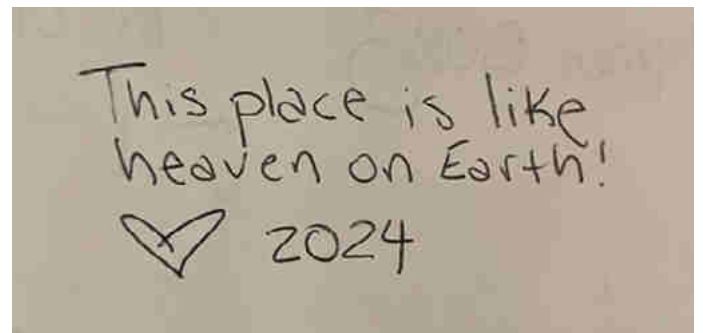 This place is like
heaven on Earth!
♡ 2024